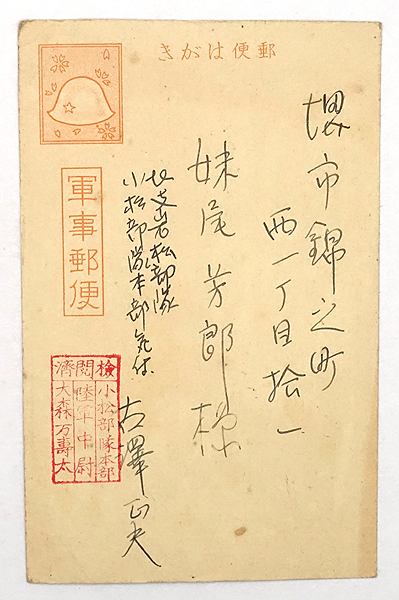 郵便はがき
堺市錦之町
西一丁目拾一
妹尾芳郎様
北支岩松部隊
小松部隊本部気付
古澤正夫
軍事郵便
検閲済
小松部隊本部
陸軍中尉
大森万壽太